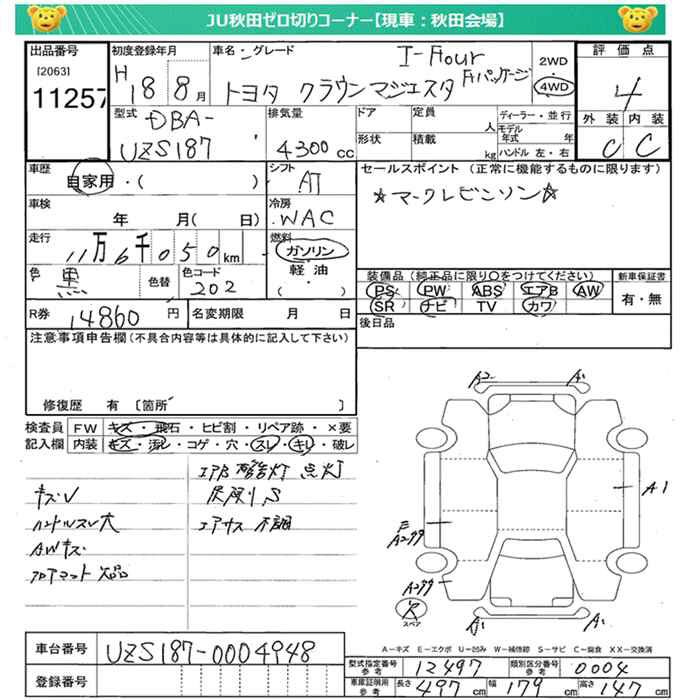 JU秋田ゼロ切りコーナー【現車：秋田会場】
出品番号
[2063]
11257
初度登録年月
H 18 8月
車名・グレード
i-Four
トヨタ クラウンマジェスタ Fパッケージ
2WD
4WD
評価点
4
外装 内装
C C
型式
DBA-
UZS187
排気量
4300cc
ドア
定員
人
形状
積載
kg
ディーラー・並行
モデル
年式
年
ハンドル 左・右
車歴
自家用・( )
シフト
AT
車検
年 月( 日)
冷房
WAC
走行
11万6千050km
燃料
ガソリン
軽油
( ・ )
色
黒
色替
色コード
202
R券
14860円
名変期限 月 日
セールスポイント (正常に機能するものに限ります)
☆マークレビンソン☆
装備品(純正品に限り〇をつけてください)
PS PW ABS エアB AW
SR ナビ TV カワ
新車保証書
有・無
後日品
注意事項申告欄(不具合内容等は具体的に記入して下さい)
修復歴 有 〔箇所 〕
検査員
記入欄
FW キズ・飛石・ヒビ割・リペア跡・×要
内装 キズ・汚レ・コゲ・穴・スレ・キレ・破レ
キズV
ハンドルスレ大
AWキズ
フロアマット欠品
エアB警告灯点灯
エアサス不調
A2 A1
A1
A2
A1
スペア
A-キズ E-エクボ U-凹み W-補修跡 S-サビ C-腐食 XX-交換済
車台番号
UZS187-0004948
登録番号
型式指定番号
参考
12497
類別区分番号
参考
0004
車庫証明用
参考
長さ 497cm
幅 179cm
高さ 147cm